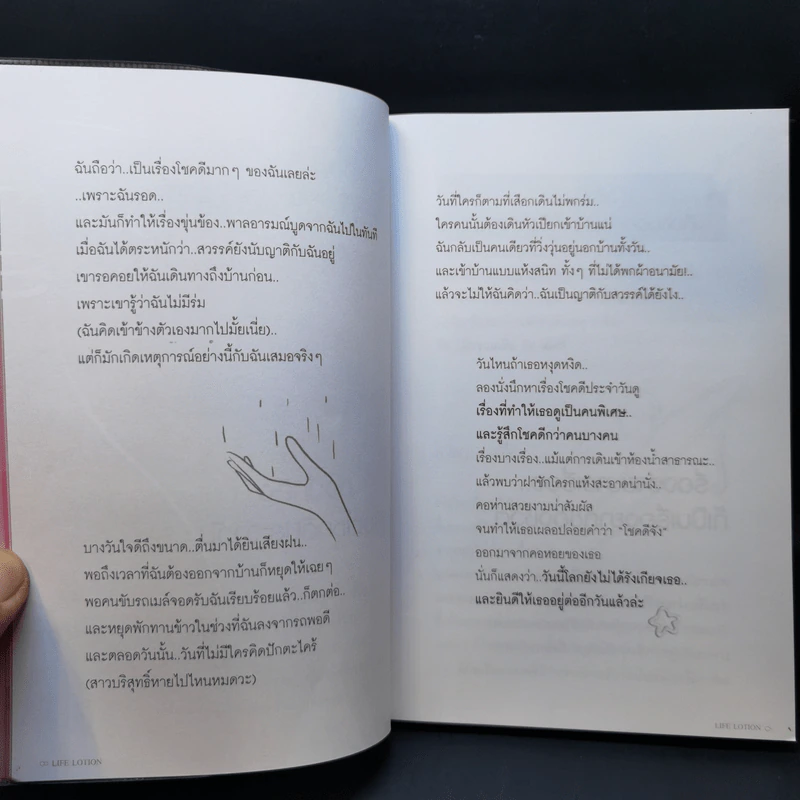 ฉันถือว่า..เป็นเรื่องโชคดีมากๆ ของฉันเลยล่ะ
..เพราะฉันรอด..
และมันก็ทำให้เรื่องขุ่นข้อง..พาลอารมณ์บูดจากฉันไปในทันที
เมื่อฉันได้ตระหนักว่า..สวรรค์ยังนับญาติกับฉันอยู่
เขารอคอยให้ฉันเดินทางถึงบ้านก่อน..
เพราะเขารู้ว่าฉันไม่มีร่ม
(ฉันคิดเข้าข้างตัวเองมากไปมั้ยเนี่ย)..
แต่ก็มักเกิดเหตุการณ์อย่างนี้กับฉันเสมอจริงๆ
บางวันใจดีถึงขนาด..ตื่นมาได้ยินเสียงฝน..
พอถึงเวลาที่ฉันต้องออกจากบ้านก็หยุดให้เฉยๆ
พอคนขับรถเมล์จอดรับฉันเรียบร้อยแล้ว..ก็ตกต่อ..
และหยุดพักทานข้าวในช่วงที่ฉันลงจากรถพอดี
และตลอดวันนั้น..วันที่ไม่มีใครคิดปักตะไคร้
(สาวบริสุทธิ์หายไปไหนหมดวะ)
LIFE LOTION
วันที่ใครก็ตามที่เสือกเดินไม่พกร่ม..
ใครคนนั้นต้องเดินหัวเปียกเข้าบ้านแน่
ฉันกลับเป็นคนเดียวที่วิ่งวุ่นอยู่นอกบ้านทั้งวัน..
และเข้าบ้านแบบแห้งสนิท ทั้งๆ ที่ไม่ได้พกผ้าอนามัย!..
แล้วจะไม่ให้ฉันคิดว่า..ฉันเป็นญาติกับสวรรค์ได้ยังไง..
วันไหนถ้าเธอหงุดหงิด..
ลองนั่งนึกหาเรื่องโชคดีประจำวันดู
เรื่องที่ทำให้เธอดูเป็นคนพิเศษ..
และรู้สึกโชคดีกว่าคนบางคน
เรื่องบางเรื่อง..แม้แต่การเดินเข้าห้องน้ำสาธารณะ..
แล้วพบว่าฝาชักโครกแห้งสะอาดน่านั่ง..
คอห่านสวยงามน่าสัมผัส
จนทำให้เธอเผลอปล่อยคำว่า "โชคดีจัง"
ออกมาจากคอหอยของเธอ
นั่นก็แสดงว่า..วันนี้โลกยังไม่ได้รังเกียจเธอ..
และยินดีให้เธออยู่ต่ออีกวันแล้วล่ะ
LIFE LOTION